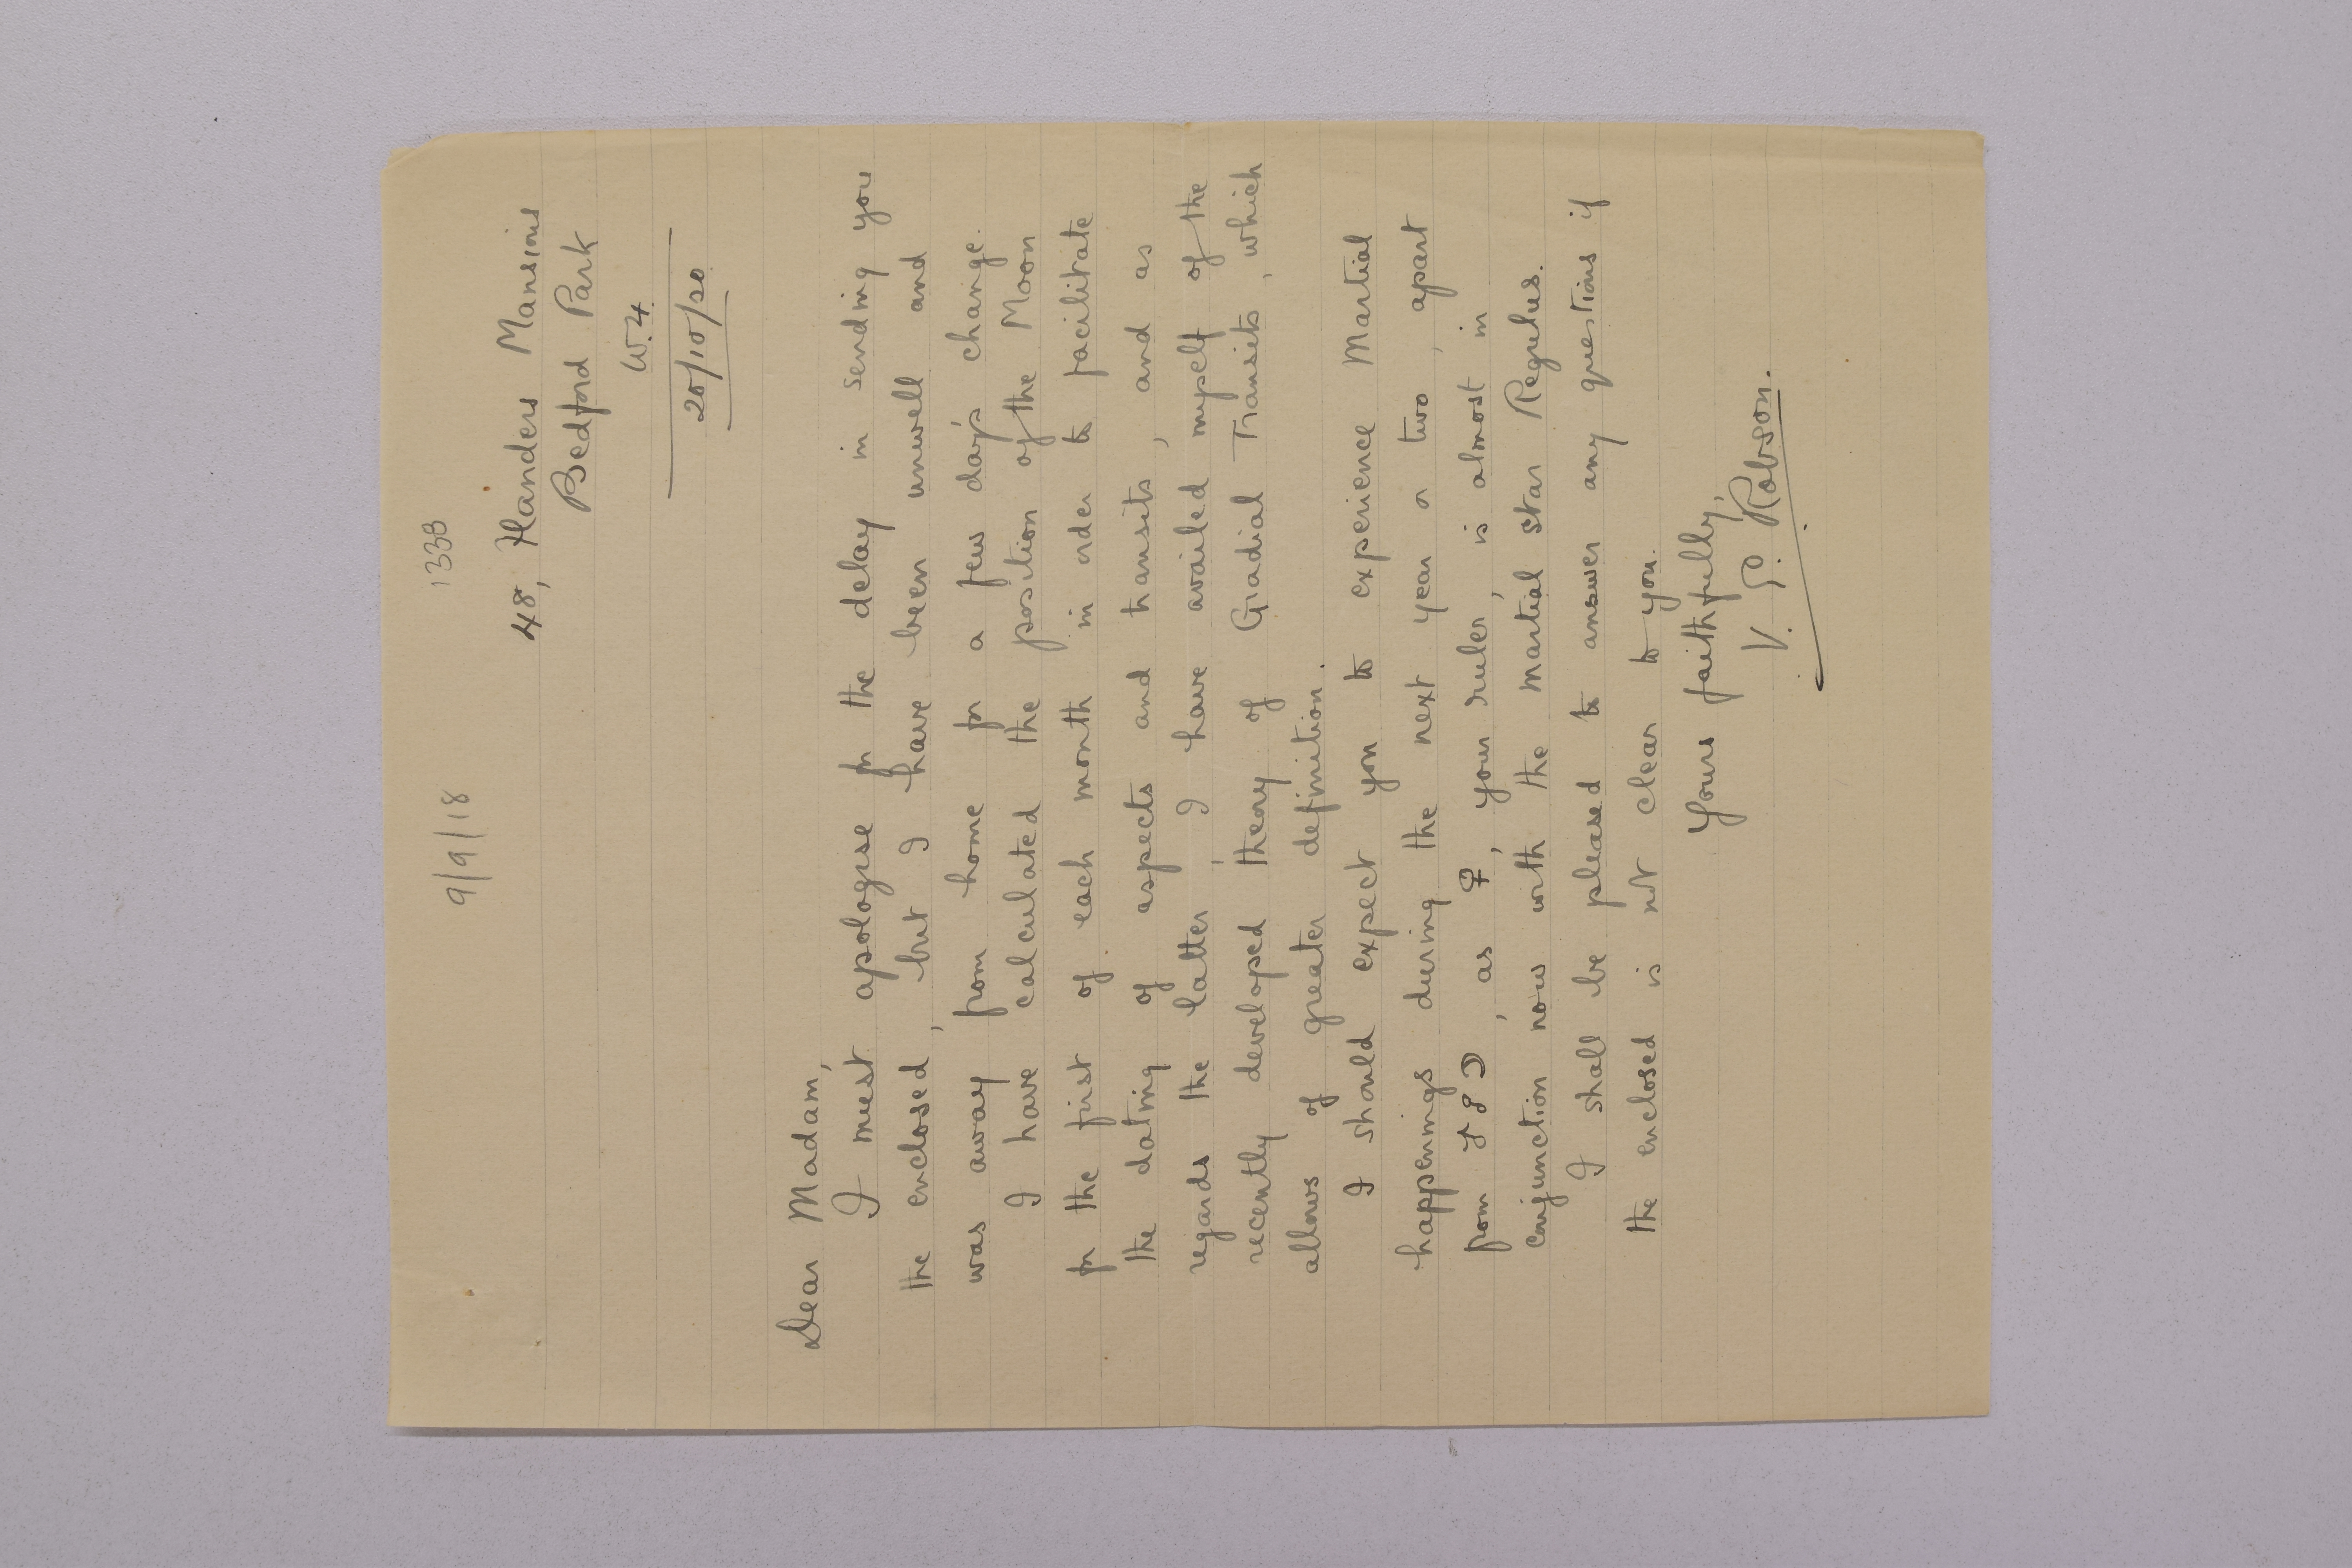 9/9/18
133B
48, Flanders Mansions
Bedford Park
W.4.
20/10/20
Dear Madam,
I must apologise for the delay in sending you
the enclosed, but I have been unwell and
was away from home for a few days change.
I have calculated the position of the Moon
for the first of each month in order to facilitate
the dating of aspects and transits, and as
regards the latter, I have availed myself of the
recently developed theory of Gradial Transits, which
allows of greater definition.
I should expect you to experience Martial
happenings during the next year or two, apart
from ♂ ☍ ☽, as ♀, your ruler, is almost in
conjunction now with the martial star Regulus.
I shall be pleased to answer any questions if
the enclosed is not clear to you.
Yours faithfully,
V. E. Robson.